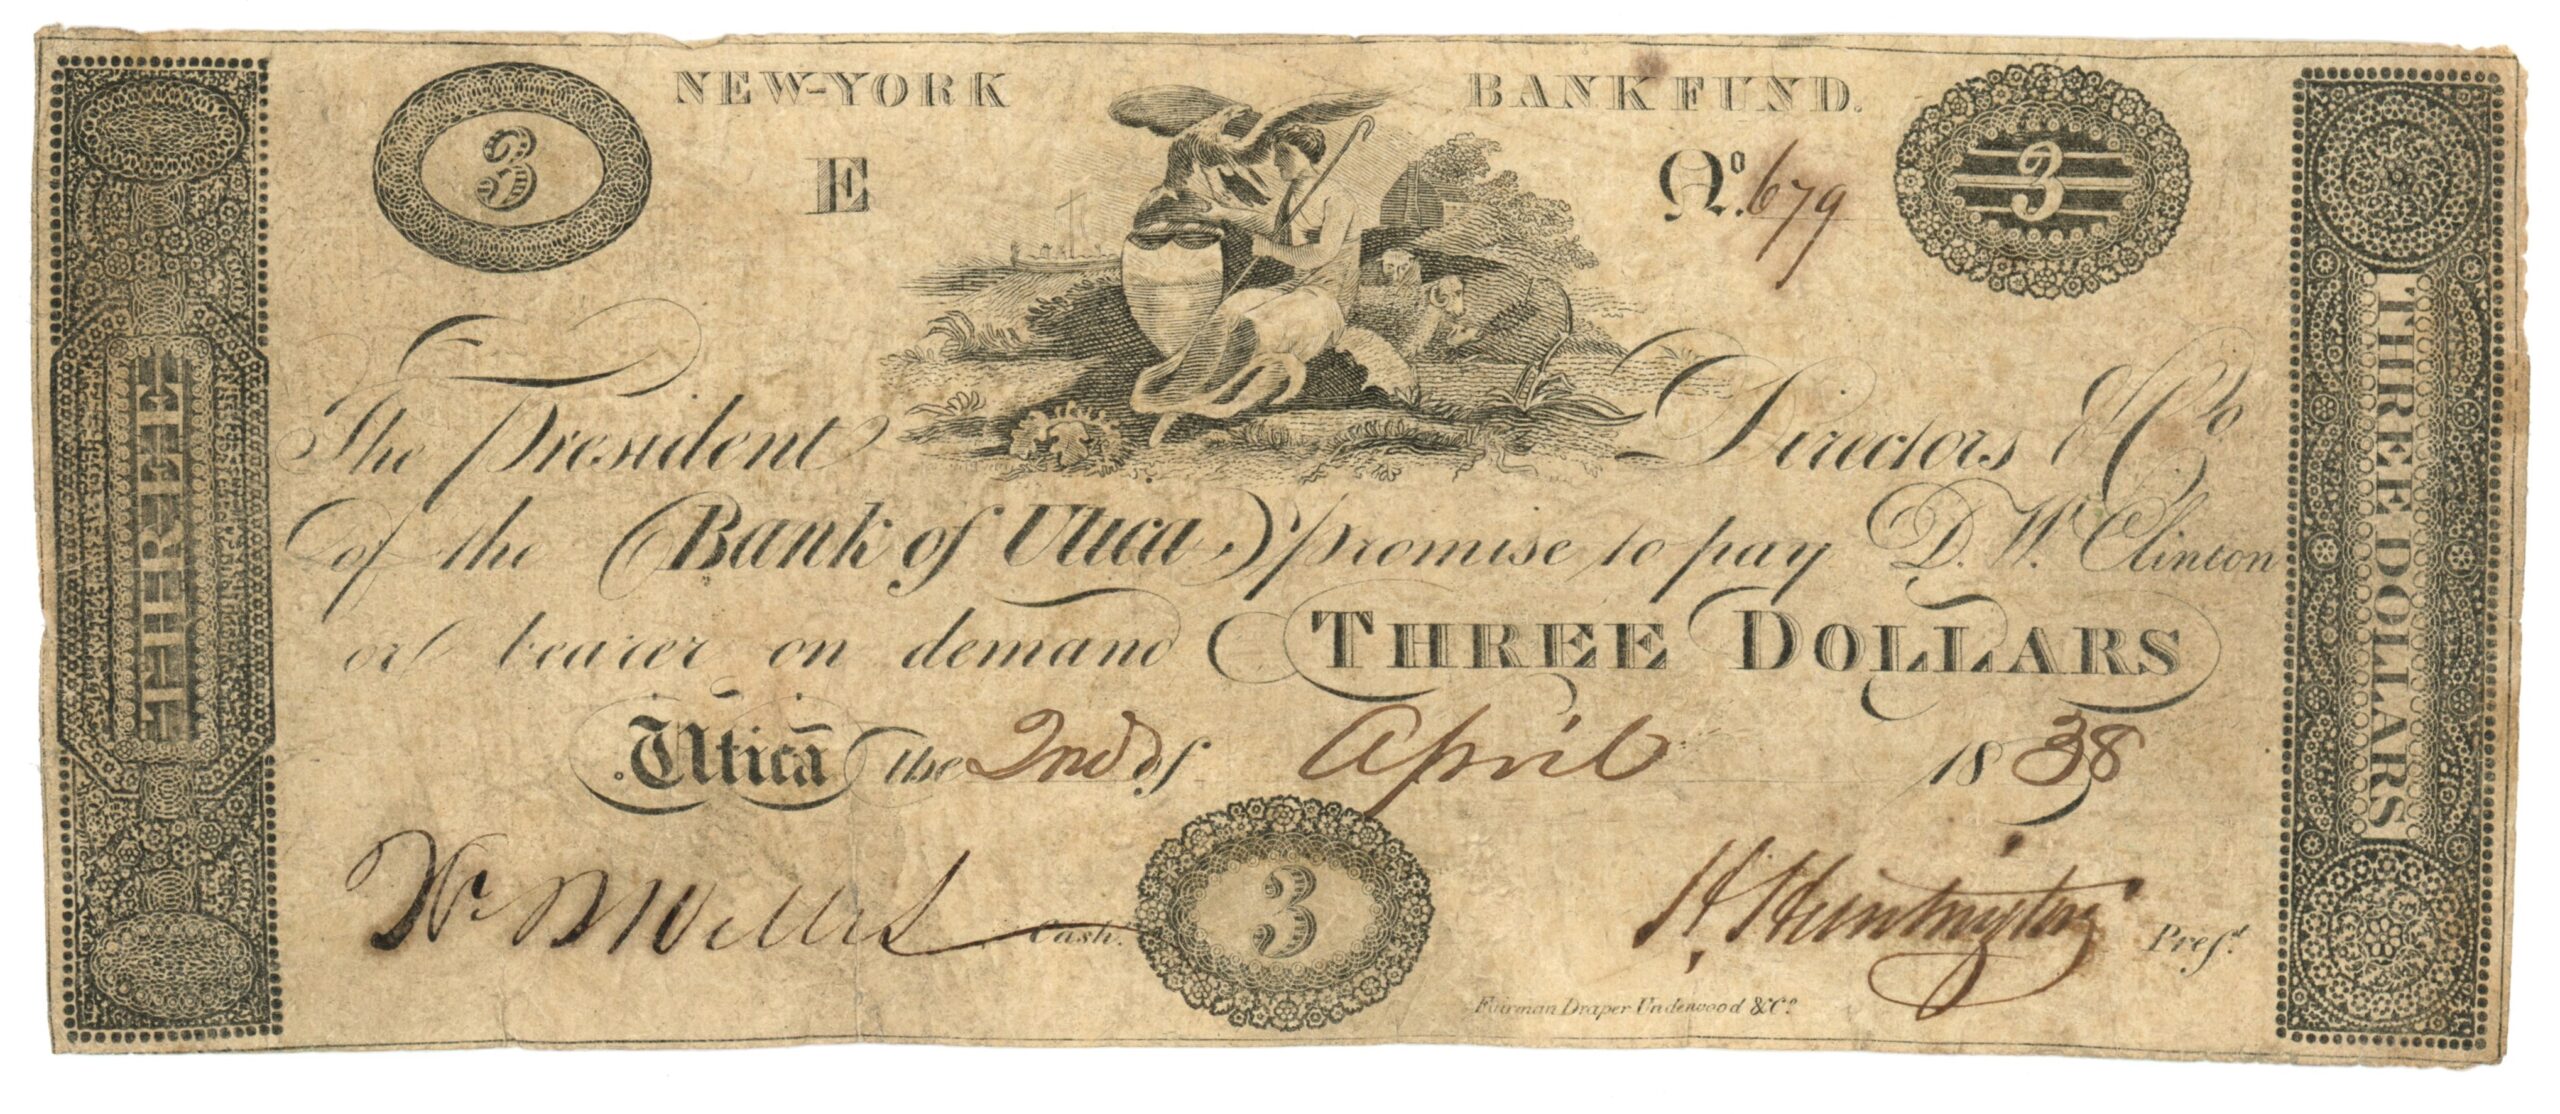 NEW-YORK BANK FUND.
3
E
No. 679
3
THREE
THREE DOLLARS
The President Directors & Co
of the Bank of Utica Promise to pay D. W. Clinton
or bearer on demand THREE DOLLARS
Utica the 2nd of April 1838
Cash.
3
H. Huntington Prest.
Fairman Draper Underwood & Co.